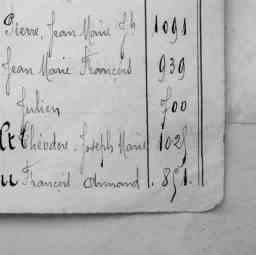 Pierre, Jean Marie Jh 1091
Jean Marie François 939
Julien 700
et Théodore, Joseph Marie 1025
François Armand 851